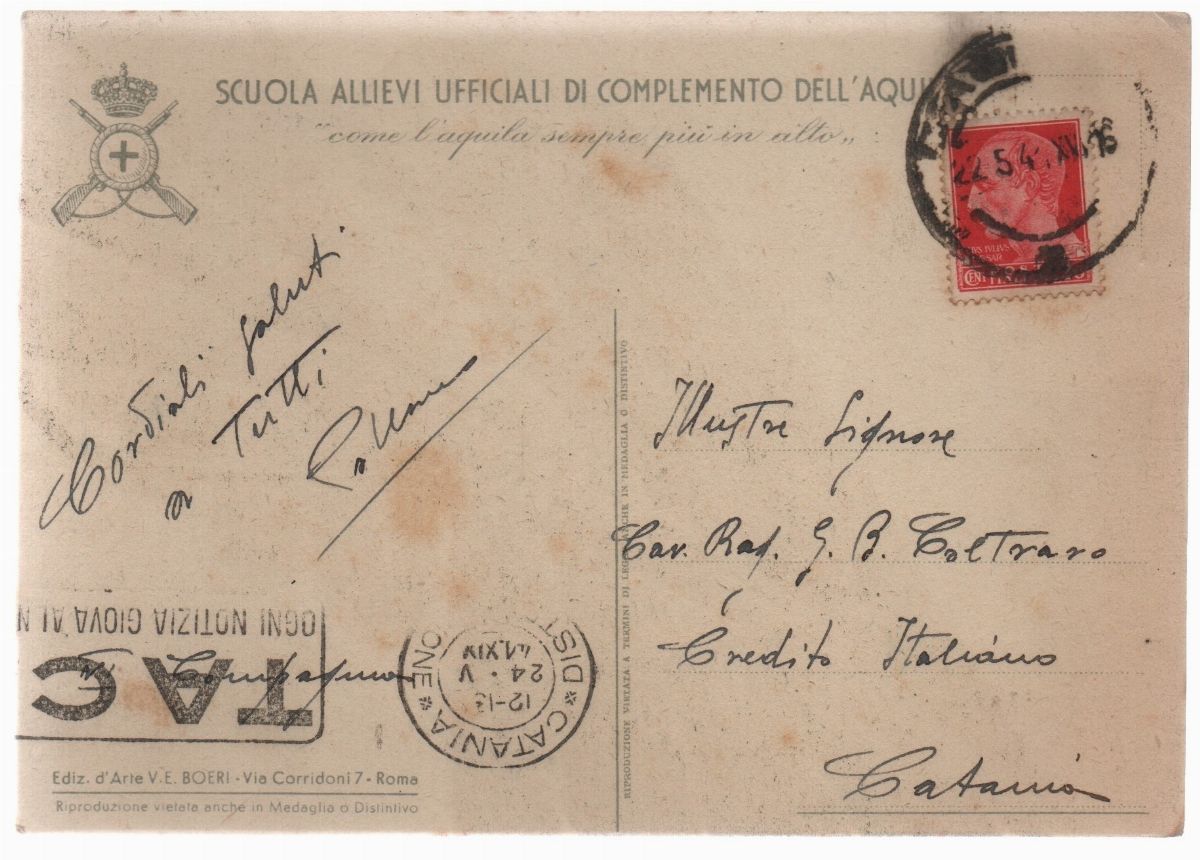 SCUOLA ALLIEVI UFFICIALI DI COMPLEMENTO DELL'AQUI
"come l'aquila sempre più in alto„
22.5.4 XIX 16
CENT
Cordiali saluti
a Tutti
Illustre Signore
Cav. Rag. G. B. Coltraro
Credito Italiano
Catania
RIPRODUZIONE VIETATA A TERMINI DI LEGGE ANCHE IN MEDAGLIA O DISTINTIVO
OGNI NOTIZIA GIOVA AL N
TAC
CATANIA
DIST
ONE
12-13
24·V
41.XIX
Ediz. d'Arte V. E. BOERI - Via Corridoni 7 - Roma
Riproduzione vietata anche in Medaglia o Distintivo